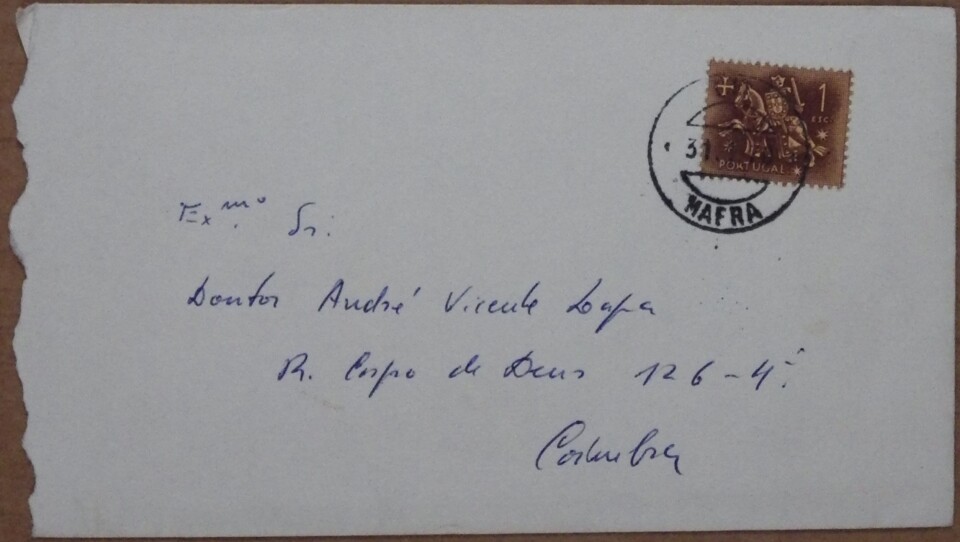 1
ESC.
PORTUGAL
31.
MAFRA
Exmº. Sr.
Doutor André Vicente Lapa
R. Corpo de Deus 126-4º.
Coimbra